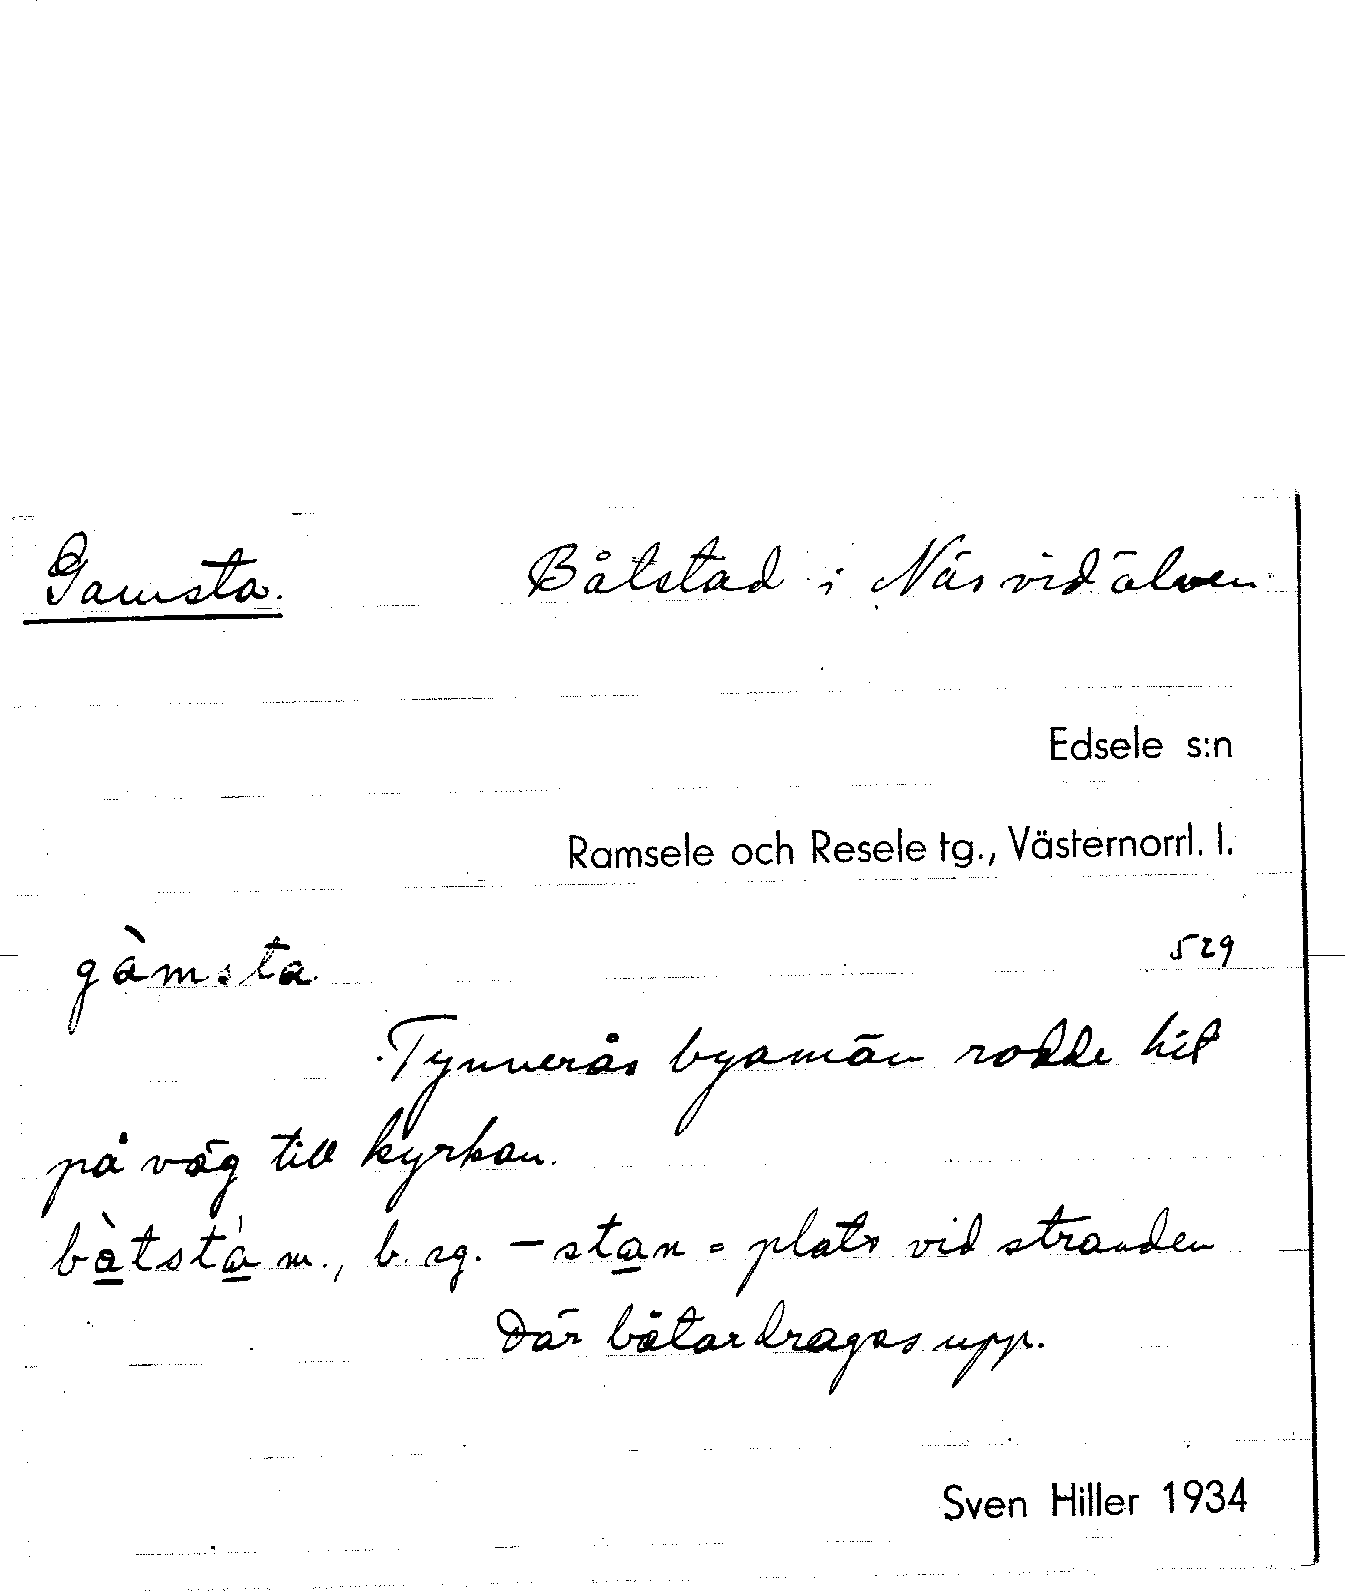 Gamsta. Båtstad i Näs vid älven
Edsele s:n
Ramsele och Resele tg., Västernorrl. l.
gàmsta. 529
Tynnerås byamän rodde hit
på väg till kyrkan.
bàtstá m., b. sg. -stan = plats vid stranden
där båtar dragas upp.
Sven Hiller 1934